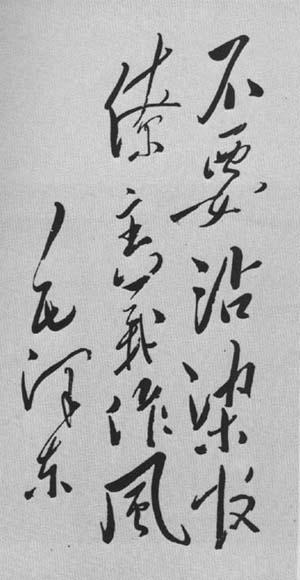 不要沾染官
僚主義作風
毛泽东